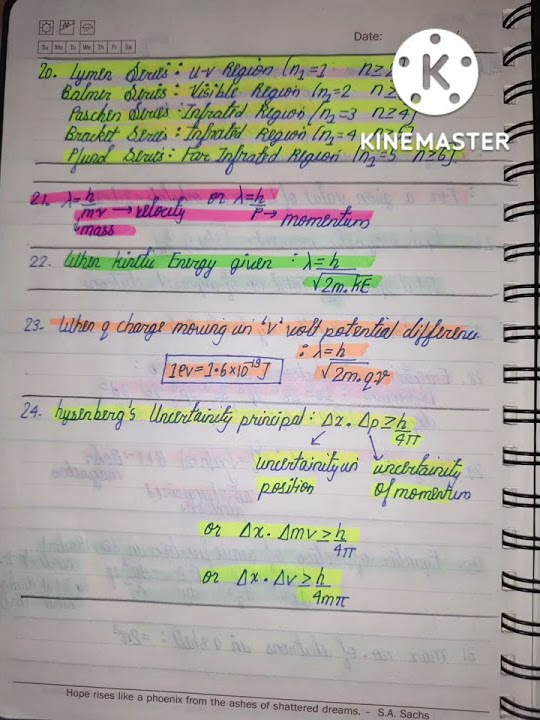 Su Mo Tu We Th Fr Sa
Date:
K
KINEMASTER
20. Lymen Series: U-V Region (n₁=1 n≥
Balmer Series: Visible Region (n₁=2 n≥
Paschen Series: Infrared Region (n₁=3 n≥4)
Bracket Series: Infrared Region (n₁=4
Pfund Series: Far Infrared Region (n₁=5 n≥6)
21. λ=h/mv → velocity or λ=h/P → momentum
mass
22. When kinetic Energy given : λ=h/√2m.KE
23- When q charge moving in 'V' volt potential difference
∴ λ=h/√2m.qv
1ev=1.6×10⁻¹⁹J
24. hysenberg's Uncertainity principal: Δx.Δp≥h/4π
uncertainity in position
uncertainity of momentum
or Δx.Δmv≥h/4π
or Δx.Δv≥h/4mπ
Hope rises like a phoenix from the ashes of shattered dreams. - S.A. Sachs